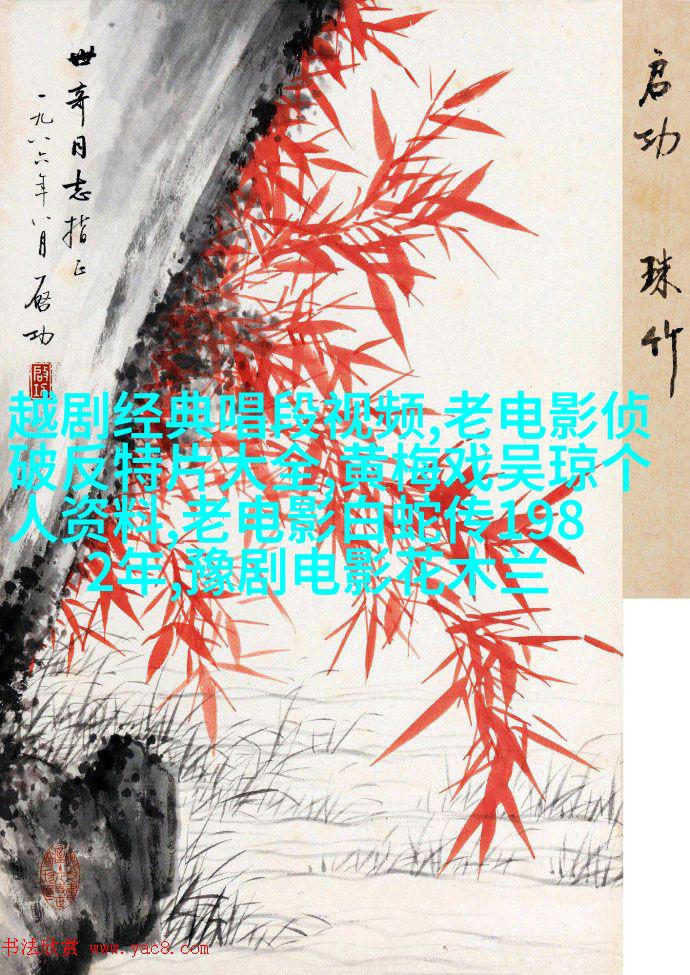 启功
珠竹
世奇同志指正
一九八六年八月
启功
越剧经典唱段视频,老电影侦
破反特片大全,黄梅戏吴琼个
人资料,老电影白蛇传198
2年,豫剧电影花木兰
书法欣赏 www.yac8.com